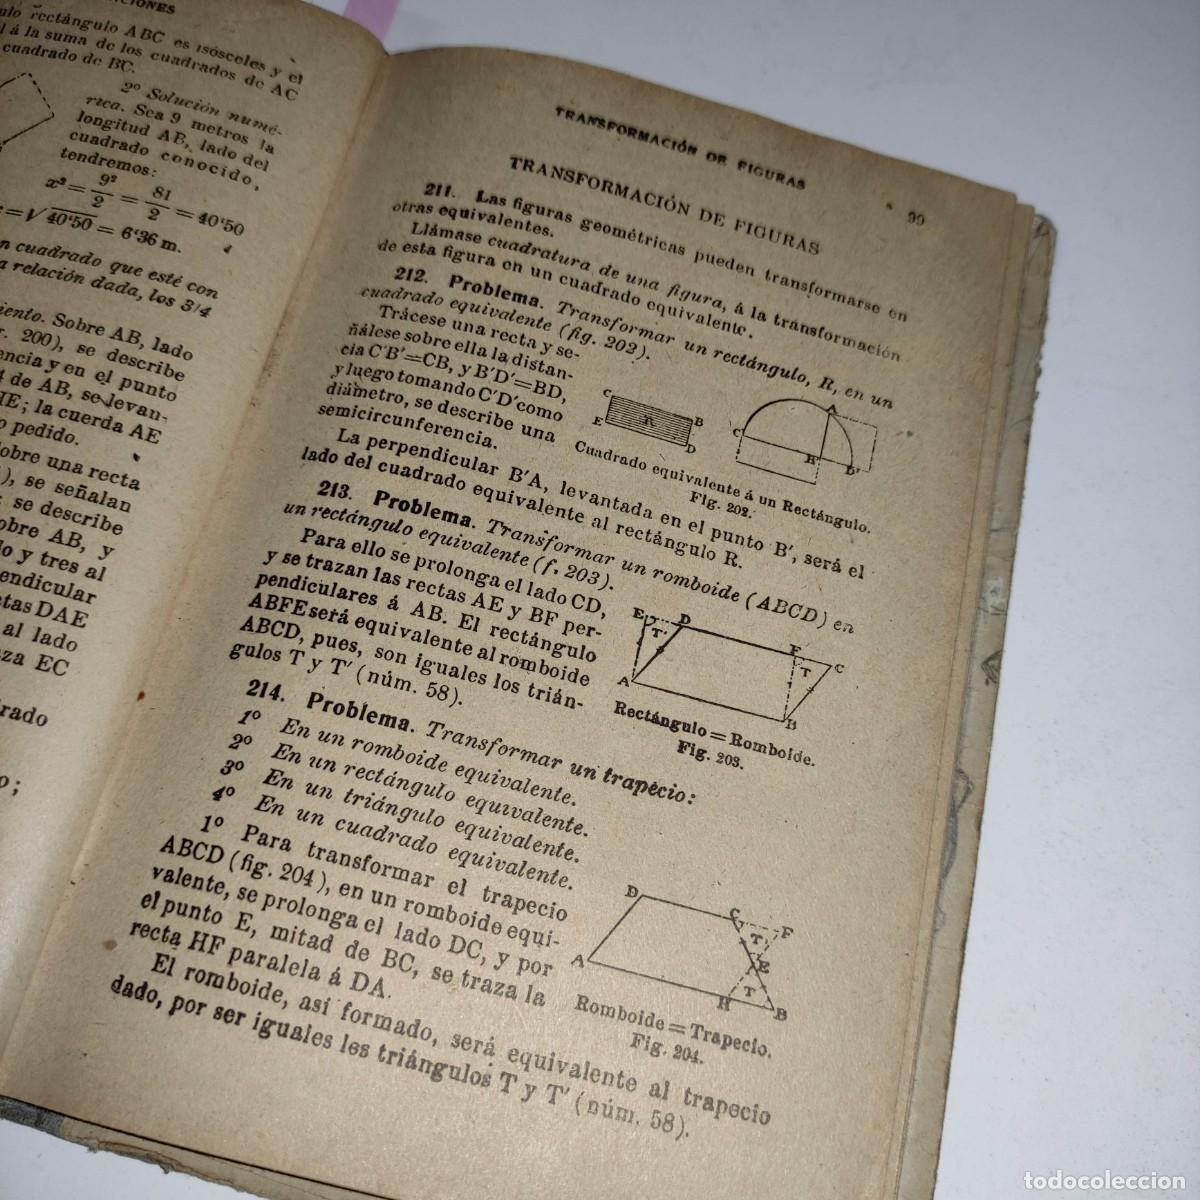 CIONES
ulo rectángulo ABC es isósceles y el
l á la suma de los cuadrados de AC
cuadrado de BC.
2º Solución numé-
rica. Sea 9 metros la
longitud AB, lado del
cuadrado conocido,
tendremos:
x² = 9²/2 = 81/2 = 40'50
= √40'50 = 6'36 m.
n cuadrado que esté con
a relación dada, los 3/4
iento. Sobre AB, lado
. 200), se describe
encia y en el punto
4 de AB, se levan-
HE; la cuerda AE
o pedido.
obre una recta
), se señalan
se describe
obre AB, y
lo y tres al
endicular
ctas DAE
al lado
aza EC
rado
o;
TRANSFORMACIÓN DE FIGURAS
99
TRANSFORMACIÓN DE FIGURAS
211. Las figuras geométricas pueden transformarse en
otras equivalentes.
Llámase cuadratura de una figura, á la transformación
de esta figura en un cuadrado equivalente.
212. Problema. Transformar un rectángulo, R, en un
cuadrado equivalente (fig. 202).
Trácese una recta y se-
ñálese sobre ella la distan-
cia C'B'=CB, y B'D'=BD,
y luego tomando C'D' como
diámetro, se describe una
semicircunferencia.
C B
E R D
C' A
B' D'
Cuadrado equivalente á un Rectángulo.
Fig. 202.
La perpendicular B'A, levantada en el punto B', será el
lado del cuadrado equivalente al rectángulo R.
213. Problema. Transformar un romboide (ABCD) en
un rectángulo equivalente (f. 203).
Para ello se prolonga el lado CD,
y se trazan las rectas AE y BF per-
pendiculares á AB. El rectángulo
ABFE será equivalente al romboide
ABCD, pues, son iguales los trián-
gulos T y T' (núm. 58).
E D F C
T' T
A B
Rectángulo = Romboide.
Fig. 203.
214. Problema. Transformar un trapecio:
1º En un romboide equivalente.
2º En un rectángulo equivalente.
3º En un triángulo equivalente.
4º En un cuadrado equivalente.
1º Para transformar el trapecio
ABCD (fig. 204), en un romboide equi-
valente, se prolonga el lado DC, y por
el punto E, mitad de BC, se traza la
recta HF paralela á DA.
D C F
T'
E
A H T B
Romboide = Trapecio.
Fig. 204.
El romboide, así formado, será equivalente al trapecio
dado, por ser iguales les triángulos T y T' (núm. 58).
todocoleccion